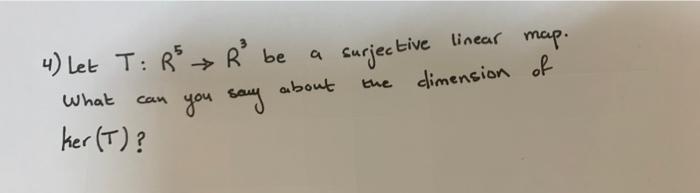 4) Let T: R⁵ → R³ be a surjective linear map.
What can you say about the dimension of
ker(T)?